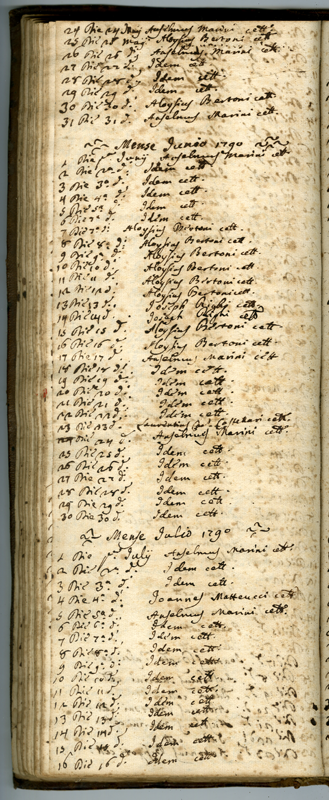 24 Die 24 Maij Anselmus Marini cett.
25 Die 25 Maij Aloysius Bertoni cett.
26 Die 26 d. Anselmus Marini cett.
27 Die 27 d. Idem cett.
28 Die 28 d. Idem cett.
29 Die 29 d. Idem cett.
30 Die 30 d. Aloysius Bertoni cett.
31 Die 31 d. Anselmus Marini cett.
Mense Junio 1790
1 Die Junij Anselmus Marini cett.
2 Die 2a d. Idem cett.
3 Die 3a d. Idem cett.
4 Die 4a d. Idem cett.
5 Die 5a d. Idem cett.
6 Die d. Idem cett.
7 Die 7a d. Aloysius Bertoni cett.
8 Die 8a d. Aloysius Bertoni cett.
9 Die 9a d. Aloysius Bertoni cett.
10 Die 10 d. Aloysius Bertoni cett.
11 Die 11 d. Aloysius Bertoni cett.
12 Die 12 d. Aloysius Bertoni cett.
13 Die 13 d. Joseph Righi cett.
14 Die 14 d. Joseph Righi cett.
15 Die 15 d. Aloysius Bertoni cett.
16 Die 16 d. Aloysius Bertoni cett.
17 Die 17 d. Anselmus Marini cett.
18 Die 18 d. Idem cett.
19 Die 19 d. Idem cett.
20 Die 20 d. Idem cett.
21 Die 21 d. Idem cett.
22 Die 22 d. Idem cett.
23 Die 23 d. Laurentius cett.
24 Die 24 d. Anselmus Marini cett.
25 Die 25 d. Idem cett.
26 Die 26 d. Idem cett.
27 Die 27 d. Idem cett.
28 Die 28 d. Idem cett.
29 Die 29 d. Idem cett.
30 Die 30 d. Idem cett.
Mense Julio 1790
1 Die Julij Anselmus Marini cett.
2 Die 2a d. Idem cett.
3 Die 3a d. Idem cett.
4 Die 4a d. Joannes Matteucci cett.
5 Die 5a d. Anselmus Marini cett.
6 Die 6a d. Idem cett.
7 Die 7a d. Idem cett.
8 Die 8a d. Idem cett.
9 Die 9a d. Idem cett.
10 Die 10 d. Idem cett.
11 Die 11 d. Idem cett.
12 Die 12 d. Idem cett.
13 Die 13 d. Idem cett.
14 Die 14 d. Idem cett.
15 Die Idem cett.
16 Die 16 d. Idem cett.